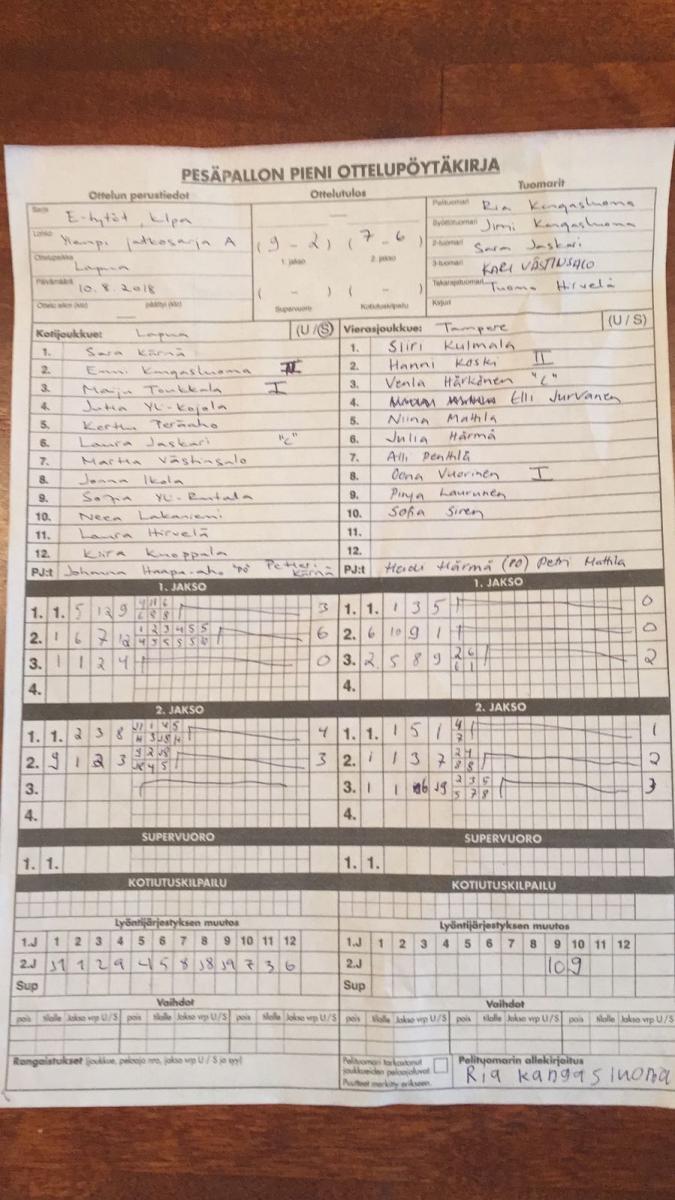 PESÄPALLON PIENI OTTELUPÖYTÄKIRJA
Ottelun perustiedot Ottelutulos Tuomarit
Sarja E-tytöt, kilpa
Lohko Ylempi jatkosarja A
Ottelupaikka Lapua
Päivämäärä 10.8.2018
(9 - 2) (7 - 6)
1. jakso 2. jakso
( - ) ( - )
Supervuoro Kotiutuskilpailu
Pelituomari Ria Kangasluoma
Syöttötuomari Jimi Kangasluoma
2-tuomari Sara Jaskari
3-tuomari KARI VÄSTINSALO
Takarajatuomari Tuomo Hirvelä
Kirjuri
Kotijoukkue: Lapua (U / S)
1. Sara Kärnä
2. Enni Kangasluoma II
3. Maiju Toukkala I
4. Jutta Yli-Kojola
5. Kerttu Teräaho
6. Laura Jaskari "C"
7. Martta Västinsalo
8. Jonna Ikola
9. Sofia Yli-Rantala
10. Neea Lakaniemi
11. Laura Hirvelä
12. Kiira Knoppala
PJ:t Johanna Haapa-aho PO Petteri Kärnä
Vierasjoukkue: Tampere (U / S)
1. Siiri Kulmala
2. Hanni Koski II
3. Venla Härkönen "C"
4. Elli Jurvanen
5. Niina Mattila
6. Julia Härmä
7. Alli Penttilä
8. Oona Vuorinen I
9. Pinja Laurunen
10. Sofia Siren
11.
12.
PJ:t Heidi Härmä (PO) Petri Mattila
1. JAKSO
1. 1. 5 12 9 3
2. 1 6 7 12 6
3. 1 1 2 4 0
4.
2. JAKSO
1. 1. 2 3 8 4
2. 9 1 2 3 3
3.
4.
SUPERVUORO
1. 1.
KOTIUTUSKILPAILU
Lyöntijärjestyksen muutos
1.J 1 2 3 4 5 6 7 8 9 10 11 12
2.J J1 1 2 9 4 5 8 J8 J9 7 3 6
Sup
Vaihdot
pois tilalle Jakso vrp U/S pois tilalle Jakso vrp U/S pois tilalle Jakso vrp U/S
Rangaistukset (joukkue, pelaaja nro, jakso vrp U / S ja syy)
1. JAKSO
1. 1. 1 3 5 0
2. 6 10 9 1 0
3. 2 5 8 9 2
4.
2. JAKSO
1. 1. 1 5 1 1
2. 1 1 3 7 2
3. 1 1 3
4.
SUPERVUORO
1. 1.
KOTIUTUSKILPAILU
Lyöntijärjestyksen muutos
1.J 1 2 3 4 5 6 7 8 9 10 11 12
2.J 10 9
Sup
Vaihdot
pois tilalle Jakso vrp U/S pois tilalle Jakso vrp U/S pois tilalle Jakso vrp U/S
Pelituomari tarkastanut joukkueiden pelaajaluvat
Puutteet merkitty erikseen.
Pelituomarin allekirjoitus
Ria Kangasluoma